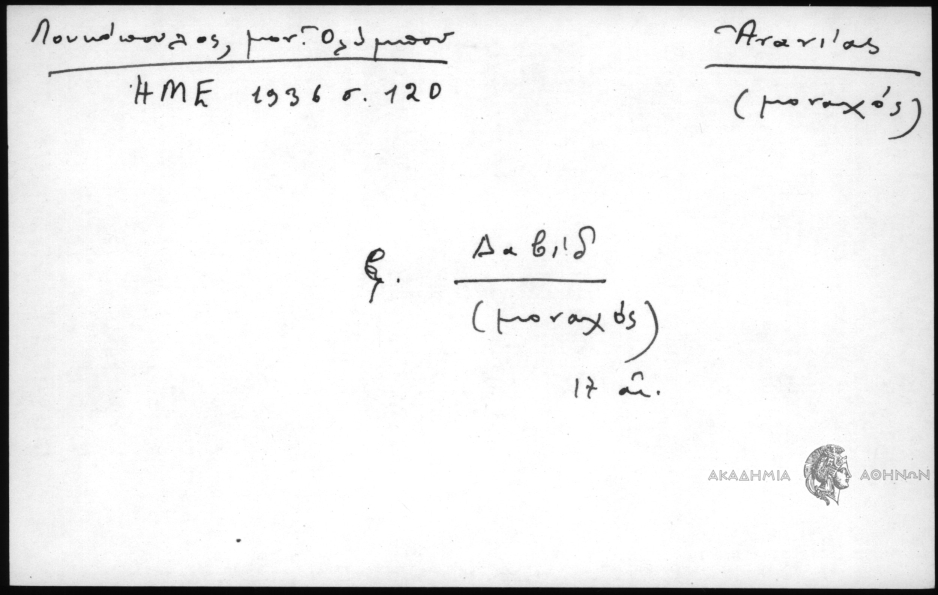 Λουκόπουλος, μον. Ὀλύμπου
ΗΜΕ 1936 σ. 120
Ἀνανίας
(μοναχός)
ξ. Δαβίδ
(μοναχός)
17 αἰ.
ΑΚΑΔΗΜΙΑ ΑΘΗΝΩΝ